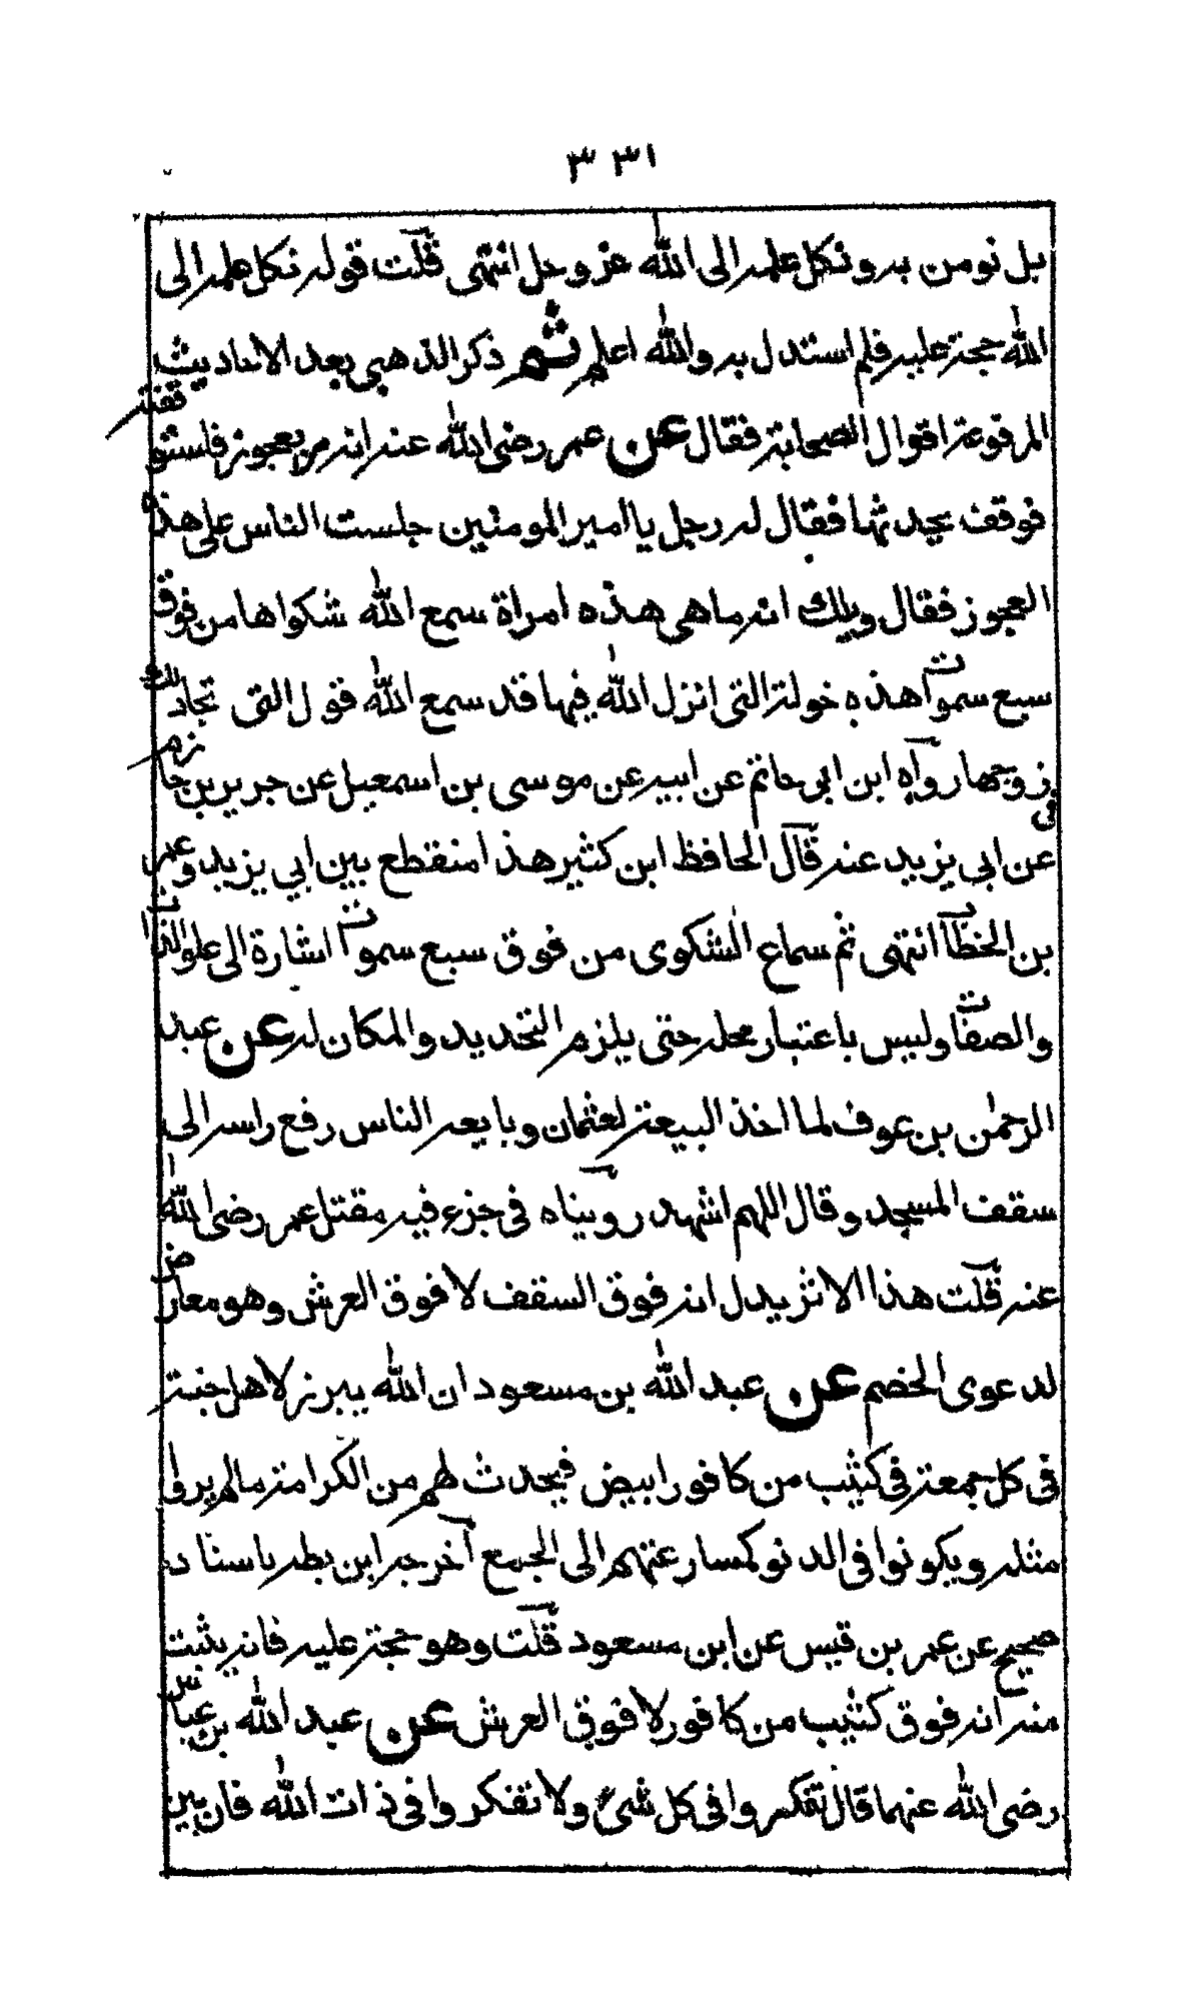 ٣٣١
بل نومن به ونكل علمه الى الله عز وجل انتهى قلت قوله نكل علمه الى
الله حجة عليه فلم استدل به والله اعلم ثم ذكر الذهبي بعد الاحاديث
المرفوعة اقوال الصحابة فقال عن عمر رضى الله عنه انه مر بعجوز فاستوقفته
فوقف يحدثها فقال له رجل يا امير المومنين حبست الناس على هذه
العجوز فقال ويلك انه ما هى هذه امراة سمع الله شكواها من فوق
سبع سموات هذه خولة التى انزل الله فيها قد سمع الله قول التى تجادلك
فى زوجها رواه ابن ابى حاتم عن ابيه عن موسى بن اسمعيل عن جرير بن حازم
عن ابى يزيد عنه قال الحافظ ابن كثير هذا منقطع بين ابي يزيد وعمر
بن الخطاب انتهى ثم سماع الشكوى من فوق سبع سموات اشارة الى علو الذات
والصفات وليس باعتبار محله حتى يلزم التحديد والمكان له عن عبد
الرحمٰن بن عوف لما اخذ البيعة لعثمان وبايعه الناس رفع راسه الى
سقف المسجد وقال اللهم اشهد رويناه فى جزء فيه مقتل عمر رضى الله
عنه قلت هذا الاثر يدل انه فوق السقف لا فوق العرش وهو معارض
لدعوى الخصم عن عبد الله بن مسعود ان الله يبرز لاهل جنته
فى كل جمعة فى كثيب من كافور ابيض فيحدث لهم من الكرامة مالم يروا
مثله ويكونوا فى الدنو كمسارعتهم الى الجمع آخرجه ابن بطه باسناد
صحيح عن عمر بن قيس عن ابن مسعود قلت وهو حجة عليه فانه يثبت
منه انه فوق كثيب من كافور لا فوق العرش عن عبد الله بن عباس
رضى الله عنهما قال تفكروا فى كل شئ ولا تفكروا فى ذات الله فان بين